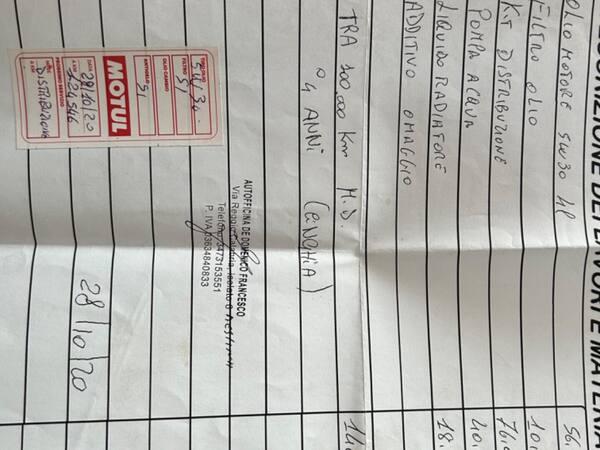 SCRIZIONE DEI LAVORI E MATERIA
OLIO MOTORE 5W30 4L 56.
FILTRO OLIO 10.
KIT DISTRIBUZIONE 76.
POMPA ACQUA 40.
LIQUIDO RADIATORE 18.
ADDITIVO OMAGGIO
TRA 100.000 Km M.D.
O 4 ANNI (CINGHIA)
TIPO OLIO 5W30
FILTRO SI
OLIO CAMBIO
ANTIGELO SI
MOTUL
DATA 28/10/20
A KM 124546
PROSSIMO SERVIZIO
A KM DISTRIBUZIONE
AUTOFFICINA DE DOMENICO FRANCESCO
Via Reggio Calabria, Isolato
Telefono 3473153551
P. IVA 03634840833
28/10/20